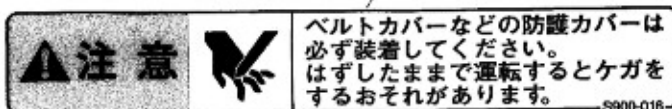 注意
ベルトカバーなどの防護カバーは
必ず装着してください。
はずしたままで運転するとケガを
するおそれがあります。
S900-016